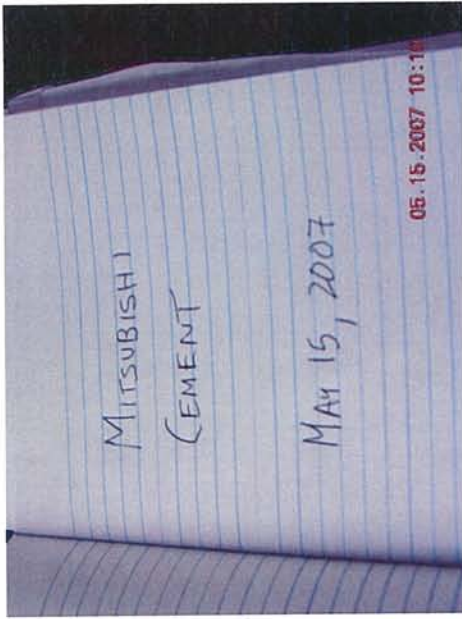 MITSUBISHI
CEMENT
MAY 15, 2007
05.15.2007 10:1